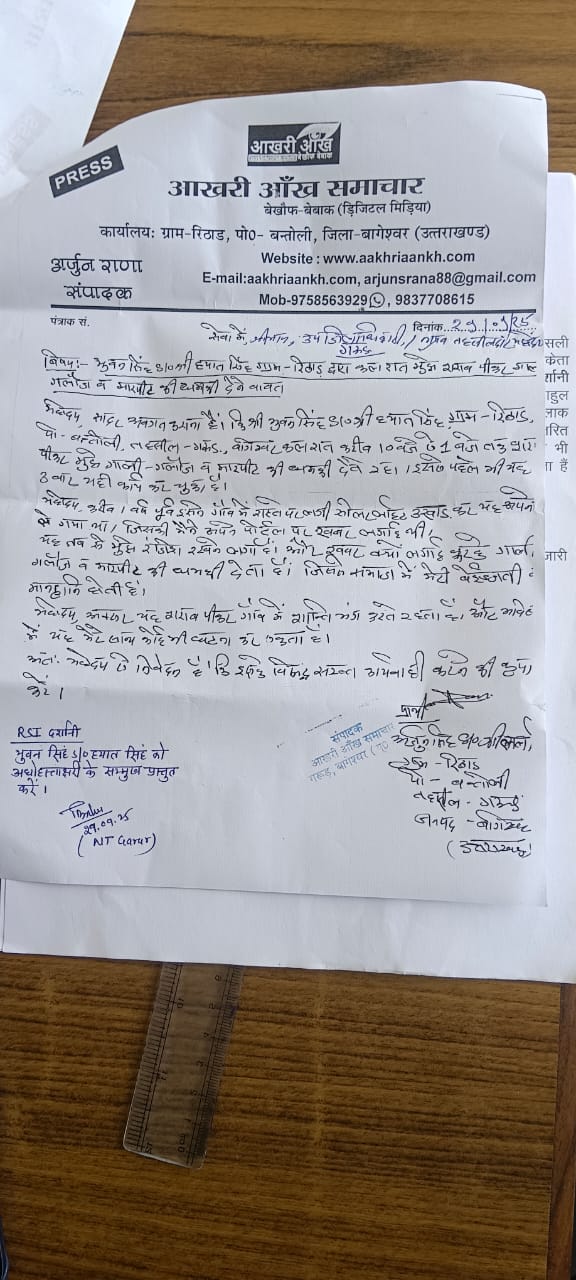 PRESS
आखरी आँख
बेखौफ बेबाक
आखरी आँख समाचार
बेखौफ-बेबाक (डिजिटल मिडिया)
कार्यालय: ग्राम-रिठाड, पो०- बन्तोली, जिला-बागेश्वर (उत्तराखण्ड)
अर्जुन राणा
संपादक
Website : www.aakhriaankh.com
E-mail:aakhriaankh.com, arjunsrana88@gmail.com
Mob-9758563929, 9837708615
पंत्राक सं.
दिनांक 29/09/25
सेवा में, श्रीमान, उप जिलाधिकारी, / नायब तहसीलदार महोदय
गरूड़
विषय:- भुवन सिंह S/o श्री हयात सिंह ग्राम-रिठाड द्वारा कल रात मुझे शराब पीकर गाली
गलौज व मारपीट की धमकी देने बावत
महोदय, सादर अवगत कराना है। कि श्री भुवन सिंह S/o श्री हयात सिंह, ग्राम-रिठाड,
पो-बन्तोली, तहसील-गरूड, बागेश्वर कल रात करीब 10 बजे से 1 बजे तक शराब
पीकर मुझे गाली-गलौज व मारपीट की धमकी देते रहा। इससे पहले भी यह
बार यही कार्य कर चुका है।
महोदय, करीब 1 वर्ष पूर्व इसने गांव में रास्ते पर लगी सोलर लाईट उखाड़ कर यह अपने
गया था, जिसकी मैंने अपने पोर्टल पर खबर लगाई थी,
यह तब से मुझसे रंजिश रखने लगा है। और खबर क्यों लगाई कहके गाली
गलौज व मारपीट की धमकी देता है। जिससे समाज में मेरी बेइज्जती व
मानहानि होती है।
महोदय, अक्सर यह शराब पीकर गाँव में शान्ति भंग करते रहता है। और
में यह मेरे साथ कोई भी घटना कर सकता है।
अतः महोदय से निवेदन है। कि इसके विरूद्ध सख्त कार्यवाही करने की कृपा
करें।
प्रार्थी
संपादक
आखरी आँख समाचार
गरूड़, बागेश्वर
अर्जुन सिंह S/o श्री
ग्राम-रिठाड
पो - बन्तोली
तहसील - गरूड़
जनपद - बागेश्वर
(उत्तराखण्ड)
RSI दर्शानी
भुवन सिंह S/o हयात सिंह को
अधोहस्ताक्षरी के सम्मुख प्रस्तुत
करें।
29.09.25
(NT Garur)
सली
केता
र्शानी
ाहुल
लाक
रित
भी
ा हैं
जारी